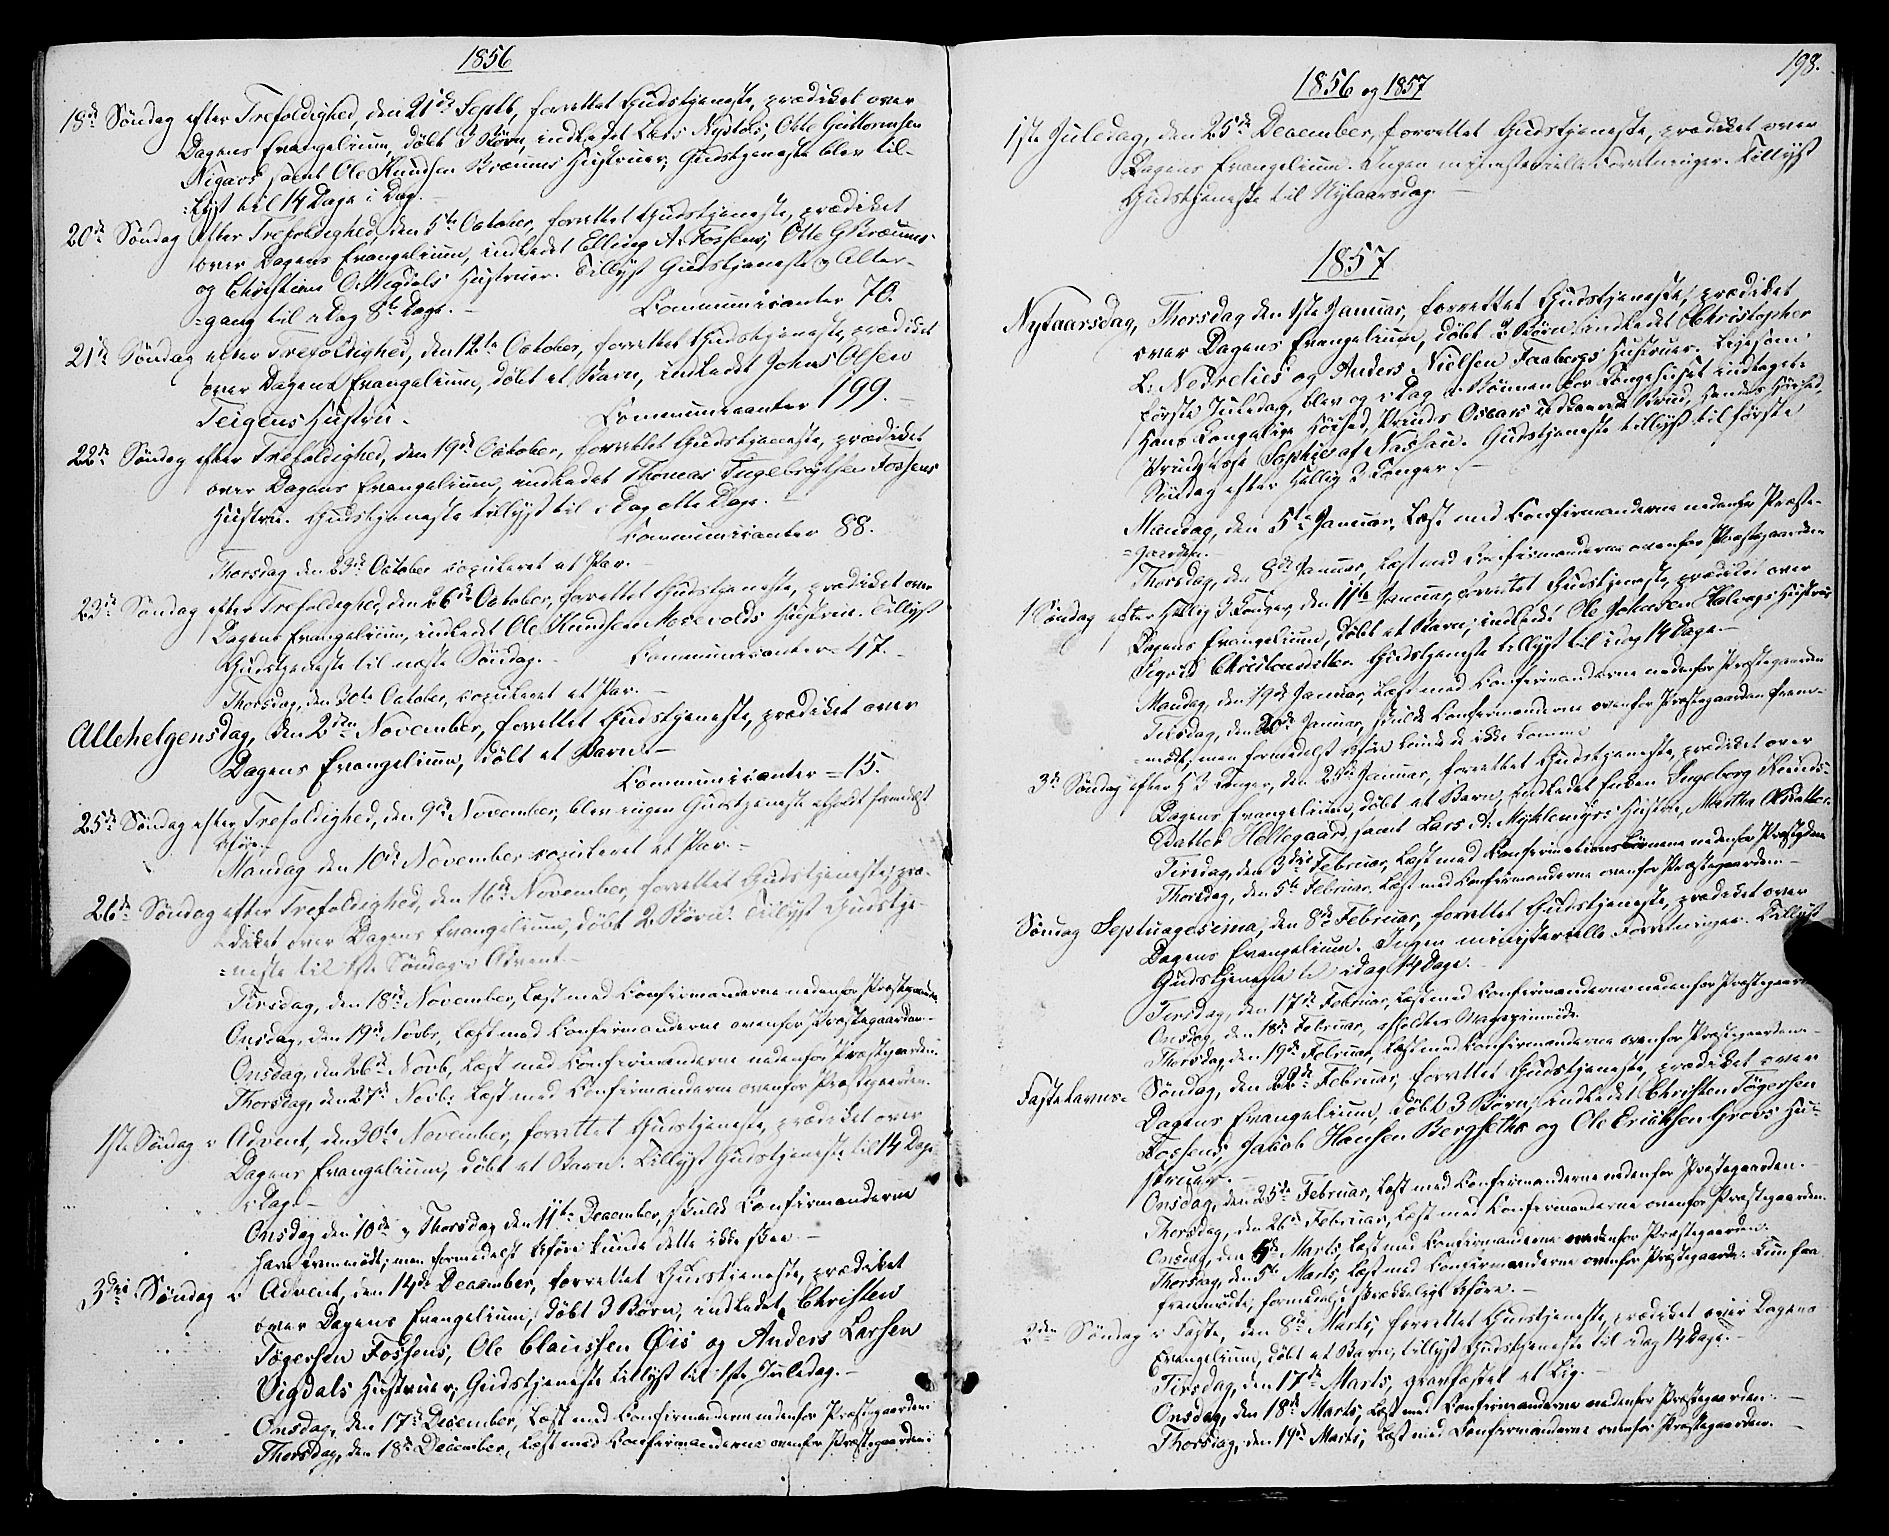 1856
18de Søndag efter Trefoldighed, den 21de Septb, forrettet Gudstjeneste, prædiket over
Dagens Evangelium, døbt 3 Børn, indledet Lars Nystøls, Otte Guttormsen
Nigards samt Ole Knudsen Bræums Hustruer; Gudstjeneste blev til-
=lyst til 14 Dage i Dag.
20de Søndag efter Trefoldighed, den 5te October, forrettet Gudstjeneste, prædiket
over Dagens Evangelium, indledet Elling A. Fossens, Otte G Bræums
og Christian O. Vigdals Hustruer. Tillyst Gudstjeneste og Alter-
=gang til i Dag 8te Dage. – Communicanter 70.
21de Søndag efter Trefoldighed, den 12te October, forrettet Gudstjeneste, prædiket
over Dagens Evangelium, døbt et Barn, indledet Johns Olsen
Teigens Hustru. Communicanter 199. –
22de Søndag efter Trefoldighed, den 19de October, forrettet Gudstjeneste, prædiket
over Dagens Evangelium, indledet Thomas Ingebrigtsen Fossens
Hustru. Gudstjeneste tillyst til i Dag otte Dage. –
Communicanter 88.
Thorsdag den 23de October copuleret et Par. –
23de Søndag efter Trefoldighed, den 26de October, forrettet Gudstjeneste, prædiket over
Dagens Evangelium, indledt Ole Knudsen Morevolds Hustru. Tillyst
Gudstjeneste til næste Søndag. – Communicanter 47. –
Thorsdag, den 30te October, copuleret et Par. –
Allehelgensdag, den 2den November, forrettet Gudstjeneste, prædiket over
Dagens Evangelium, døbt et Barn. –
Communicanter = 15.
25de Søndag efter Trefoldighed, den 9de November, blev ingen Gudstjeneste afholdt formedelst
Uføre. –
Mandag den 10de November copuleret et Par. –
26de Søndag efter Trefoldighed, den 16de November, forrettet Gudstjeneste, præ-
=diket over Dagens Evangelium, døbt 2 Børn. Tillyst Gudstje-
=neste til 1ste Søndag i Advent. –
Tirsdag, den 18de November, Læst med Confirmanderne nedenfor Præstegaarden
Onsdag, den 19de Novbr, Læst med Confirmanderne ovenfor Præstegaarden. –
Onsdag, den 26de Novb, Læst med Confirmanderne nedenfor Præstegaarden.
Thorsdag, den 27de Novb: Læst med Confirmanderne ovenfor Præstegaarden.
1ste Søndag i Advent, den 30te November, forrettet Gudstjeneste, prædiket over
Dagens Evangelium, døbt et Barn. Tillyst Gudstjeneste til 14 Dage
i Dag. –
Onsdag den 10de og Thorsdag den 11te December, skulde Confirmanderne
have fremmødt; men formedelst Uføre kunde dette ikke skee. –
3die Søndag i Advent, den 14de December, forrettet Gudstjeneste, prædiket
over Dagens Evangelium, døbt 3 Børn, indledet Christen
Tøgersen Fossens, Ole Claussen Øis og Anders Larsen
Vigdals Hustruer; Gudstjeneste tillyst til 1ste Juledag. –
Onsdag, den 17de December, Læst med Confirmanderne nedenfor Præstegaarden
Thorsdag, den 18de December, Læst med Confirmanderne ovenfor Præstegaarden
198.
1856 og 1857
1ste Juledag, den 25de December, forrettet Gudstjeneste, prædiket over
Dagens Evangelium. Ingen ministerielle Forretninger. Tillyst
Gudstjeneste til Nytaarsdag. –
1857
Nytaarsdag, Thorsdag den 1ste Januar, forrettet Gudstjeneste, prædiket
over Dagens Evangelium, døbt 2 Børn, indledet Christopher
L: Nedrelies og Anders Nielsen Faabergs Hustruer. Ligesom
første Juledag, blev og i Dag i Bønnen for Kongehuset indtaget
Hans Kongelige Høihed, Prinds Oscars Brud, Hendes Høihed,
Prindsesse Sophie af Nassau. Gudstjeneste tillyst til første
Søndag efter Hellig 3 Konger. –
Mandag, den 5te Januar, Læst med Confirmanderne nedenfor Præste-
=gaarden. –
Thorsdag, den 8de Januar, Læst med Confirmanderne ovenfor Præstegaarden
1 Søndag efter Hellig 3 Konger, den 11te Januar, forrettet Gudstjeneste, prædiket over
Dagens Evangelium, døbt et Barn, indledet Ole Johansen Hustru
Sigrid Christensdatter. Gudstjeneste tillyst til i dag 14 Dage. –
Mandag, den 19de Januar, Læst med Confirmanderne nedenfor Præstegaarden
Tirsdag, den 20de Januar, skulde Confirmanderne ovenfor Præstegaarden frem-
=mødt, men formedelst Uføre kunde de ikke komme.
3de Søndag efter H 3 Konger, den 25de Januar, forrettet Gudstjeneste, prædiket over
Dagens Evangelium, døbt et Barn, indledet Enken Ingeborg
Datter Høllegaard samt Lars A: Myklemyrs Hustru, Martha Olsdatter.
Tirsdag, den 3die Februar, Læst med Confirmationsbørnene nedenfor Præstgdne
Thorsdag, den 5te Februar, Læst med Confirmanderne ovenfor Præstegaarden. –
Søndag Septuagesima, den 8de Februar, forrettet Gudstjeneste, prædiket over
Dagens Evangelium. Ingen ministerielle Forretninger. Tillyst
Gudstjeneste til i dag 14 Dage. –
Tirsdag, den 17de Februar, Læst med Confirmanderne nedenfor Præstegaarden
Onsdag, den 18de Februar, afholdtes Magazinmøde.
Thorsdag, den 19de Februar, Læst med Confirmanderne ovenfor Præstegaarden. –
Fastelavns= Søndag, den 22de Februar, forrettet Gudstjeneste, prædiket over
Dagens Evangelium, døbt 3 Børn, indledet Christen Tøgersen
Fossens, Jakob Hansen Bergseths og Ole Eriksen Grovs Hu-
struer. –
Onsdag, den 25de Februar, Læst med Confirmanderne nedenfor Præstegaarden. –
Thorsdag, den 26de Februar, Læst med Confirmanderne ovenfor Præstegaarden.
Onsdag, den 4de Marts, Læst med Confirmanderne nedenfor Præstegaarden.
Thorsdag, den 5te Marts, Læst med Confirmanderne ovenfor Præstegaarden. Kun faa
fremmødte, formedelst skrækkeligt Uføre. –
2den Søndag i Faste, den 8de Marts, forrettet Gudstjeneste, prædiket over Dagens
Evangelium, døbt et Barn, tillyst Gudstjeneste til i dag 14 Dage. –
Tirsdag, den 17de Marts, gravfæstet et Lig. –
Onsdag, den 18de Marts, Læst med Confirmanderne nedenfor Præstegaarden. –
Thorsdag, den 19de Marts, Læst med Confirmanderne ovenfor Præstegaarden. –